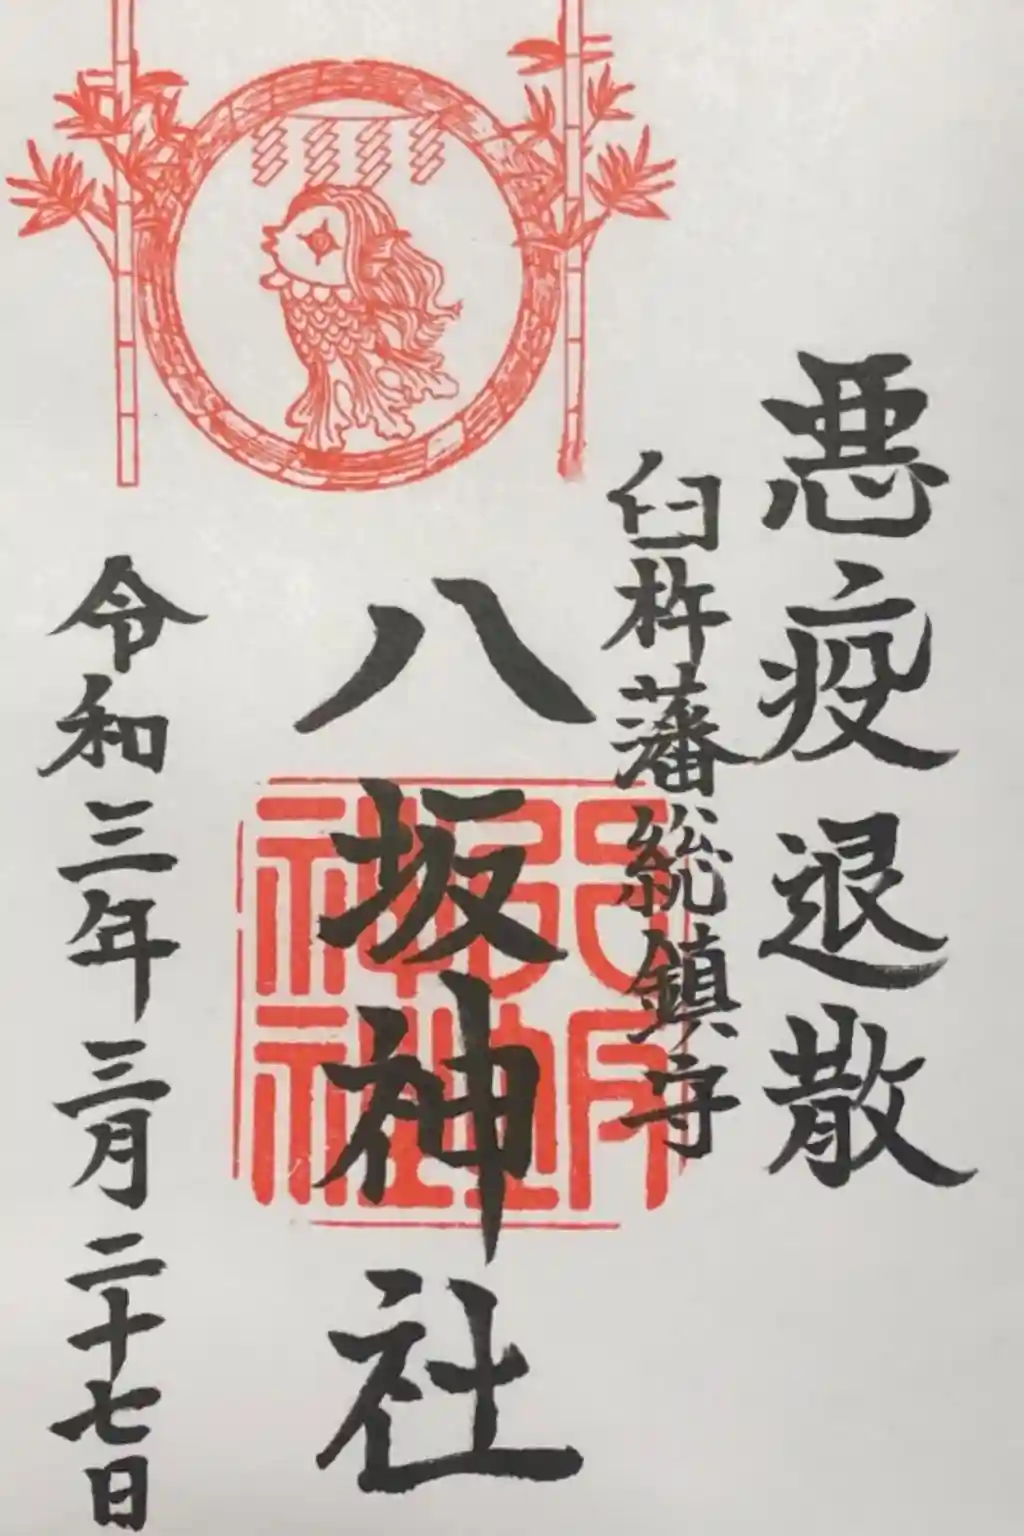 悪疫退散
臼杵藩総鎮守
八坂神社
令和三年三月二十七日